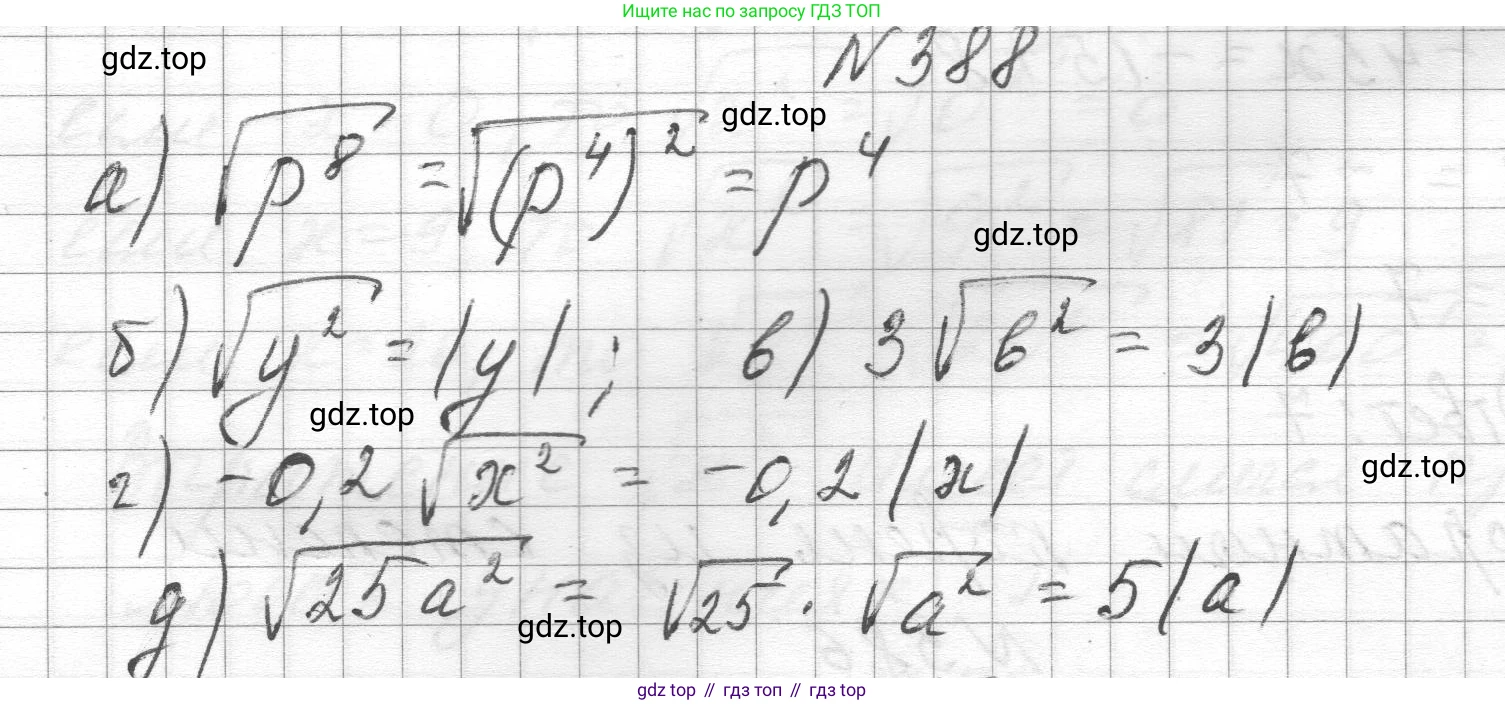 Ищите нас по запросу ГДЗ ТОП
gdz.top
N 388
gdz.top
а) √p⁸ = √(p⁴)² = p⁴
gdz.top
б) √y² = |y| ; в) 3√в² = 3|в|
gdz.top
г) -0,2√x² = -0,2|x|
gdz.top
д) √25a² = √25 · √a² = 5|a|
gdz.top
gdz.top // гдз топ // гдз top